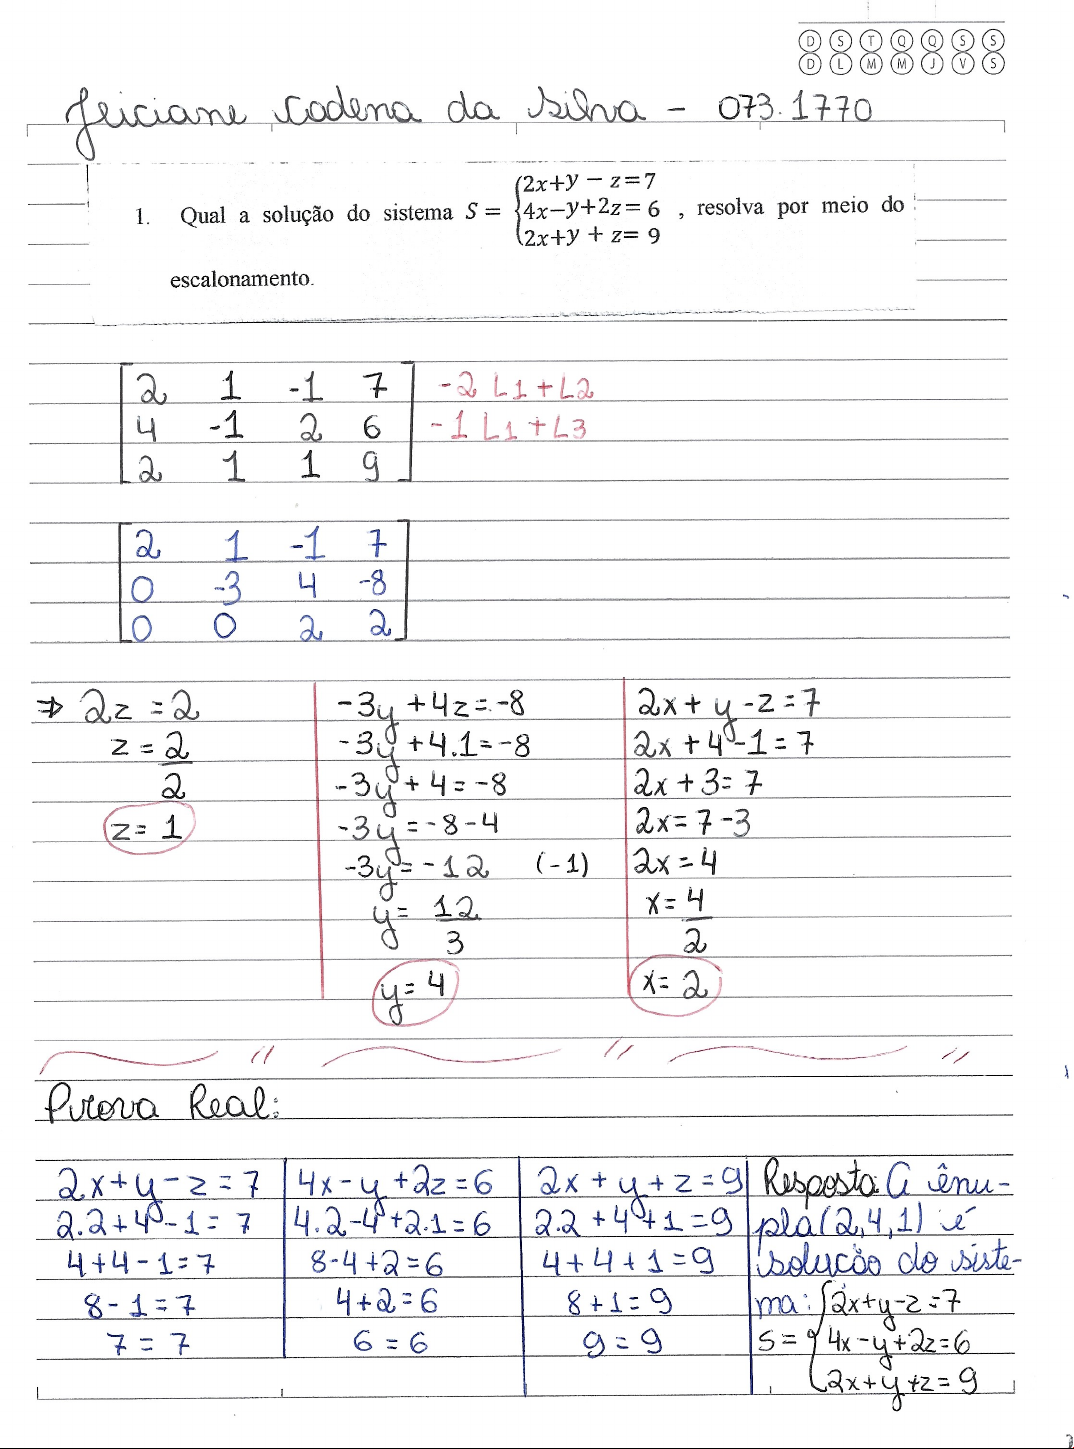 D S T Q Q S S
D L M M J V S
Jeiciane Cadena da Silva - 073.1770
1. Qual a solução do sistema S = {2x+y − z=7
4x−y+2z= 6 , resolva por meio do
2x+y + z= 9
escalonamento.
2 1 -1 7 -2 L1 + L2
4 -1 2 6 -1 L1 + L3
2 1 1 9
2 1 -1 7
0 -3 4 -8
0 0 2 2
⇒ 2z = 2
z = 2/2
z = 1
-3y + 4z = -8
-3y + 4.1 = -8
-3y + 4 = -8
-3y = -8 - 4
-3y = -12 (-1)
y = 12/3
y = 4
2x + y - z = 7
2x + 4 - 1 = 7
2x + 3 = 7
2x = 7 - 3
2x = 4
x = 4/2
x = 2
Prova Real:
2x + y - z = 7
2.2 + 4 - 1 = 7
4 + 4 - 1 = 7
8 - 1 = 7
7 = 7
4x - y + 2z = 6
4.2 - 4 + 2.1 = 6
8 - 4 + 2 = 6
4 + 2 = 6
6 = 6
2x + y + z = 9
2.2 + 4 + 1 = 9
4 + 4 + 1 = 9
8 + 1 = 9
9 = 9
Resposta: A ênu-
pla (2,4,1) é
solução do siste-
ma: {2x+y-z=7
S = 4x-y+2z=6
2x+y+z=9